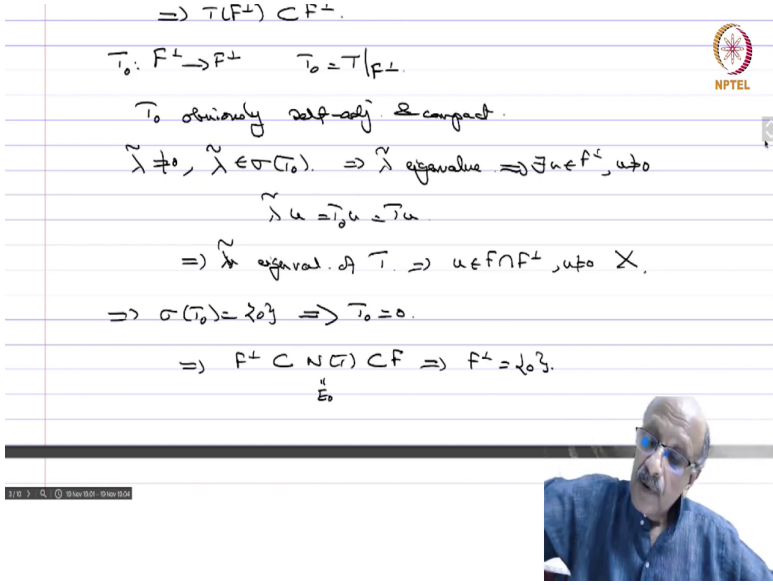 => T(F⊥) ⊂ F⊥.
T₀: F⊥ → F⊥ T₀ = T|F⊥.
NPTEL
T₀ obviously self-adj. & compact.
λ̃ ≠ 0, λ̃ ∈ σ(T₀). => λ̃ eigenvalue => ∃u ∈ F⊥, u≠0
λ̃u = T₀u = Tu.
=> λ̃ eigenval. of T. => u ∈ F∩F⊥, u≠0 X.
=> σ(T₀) = {0} => T₀ = 0.
=> F⊥ ⊂ N(T) ⊂ F => F⊥ = {0}.
"
E₀
3/10 19 Nov 19:01 - 19 Nov 19:04